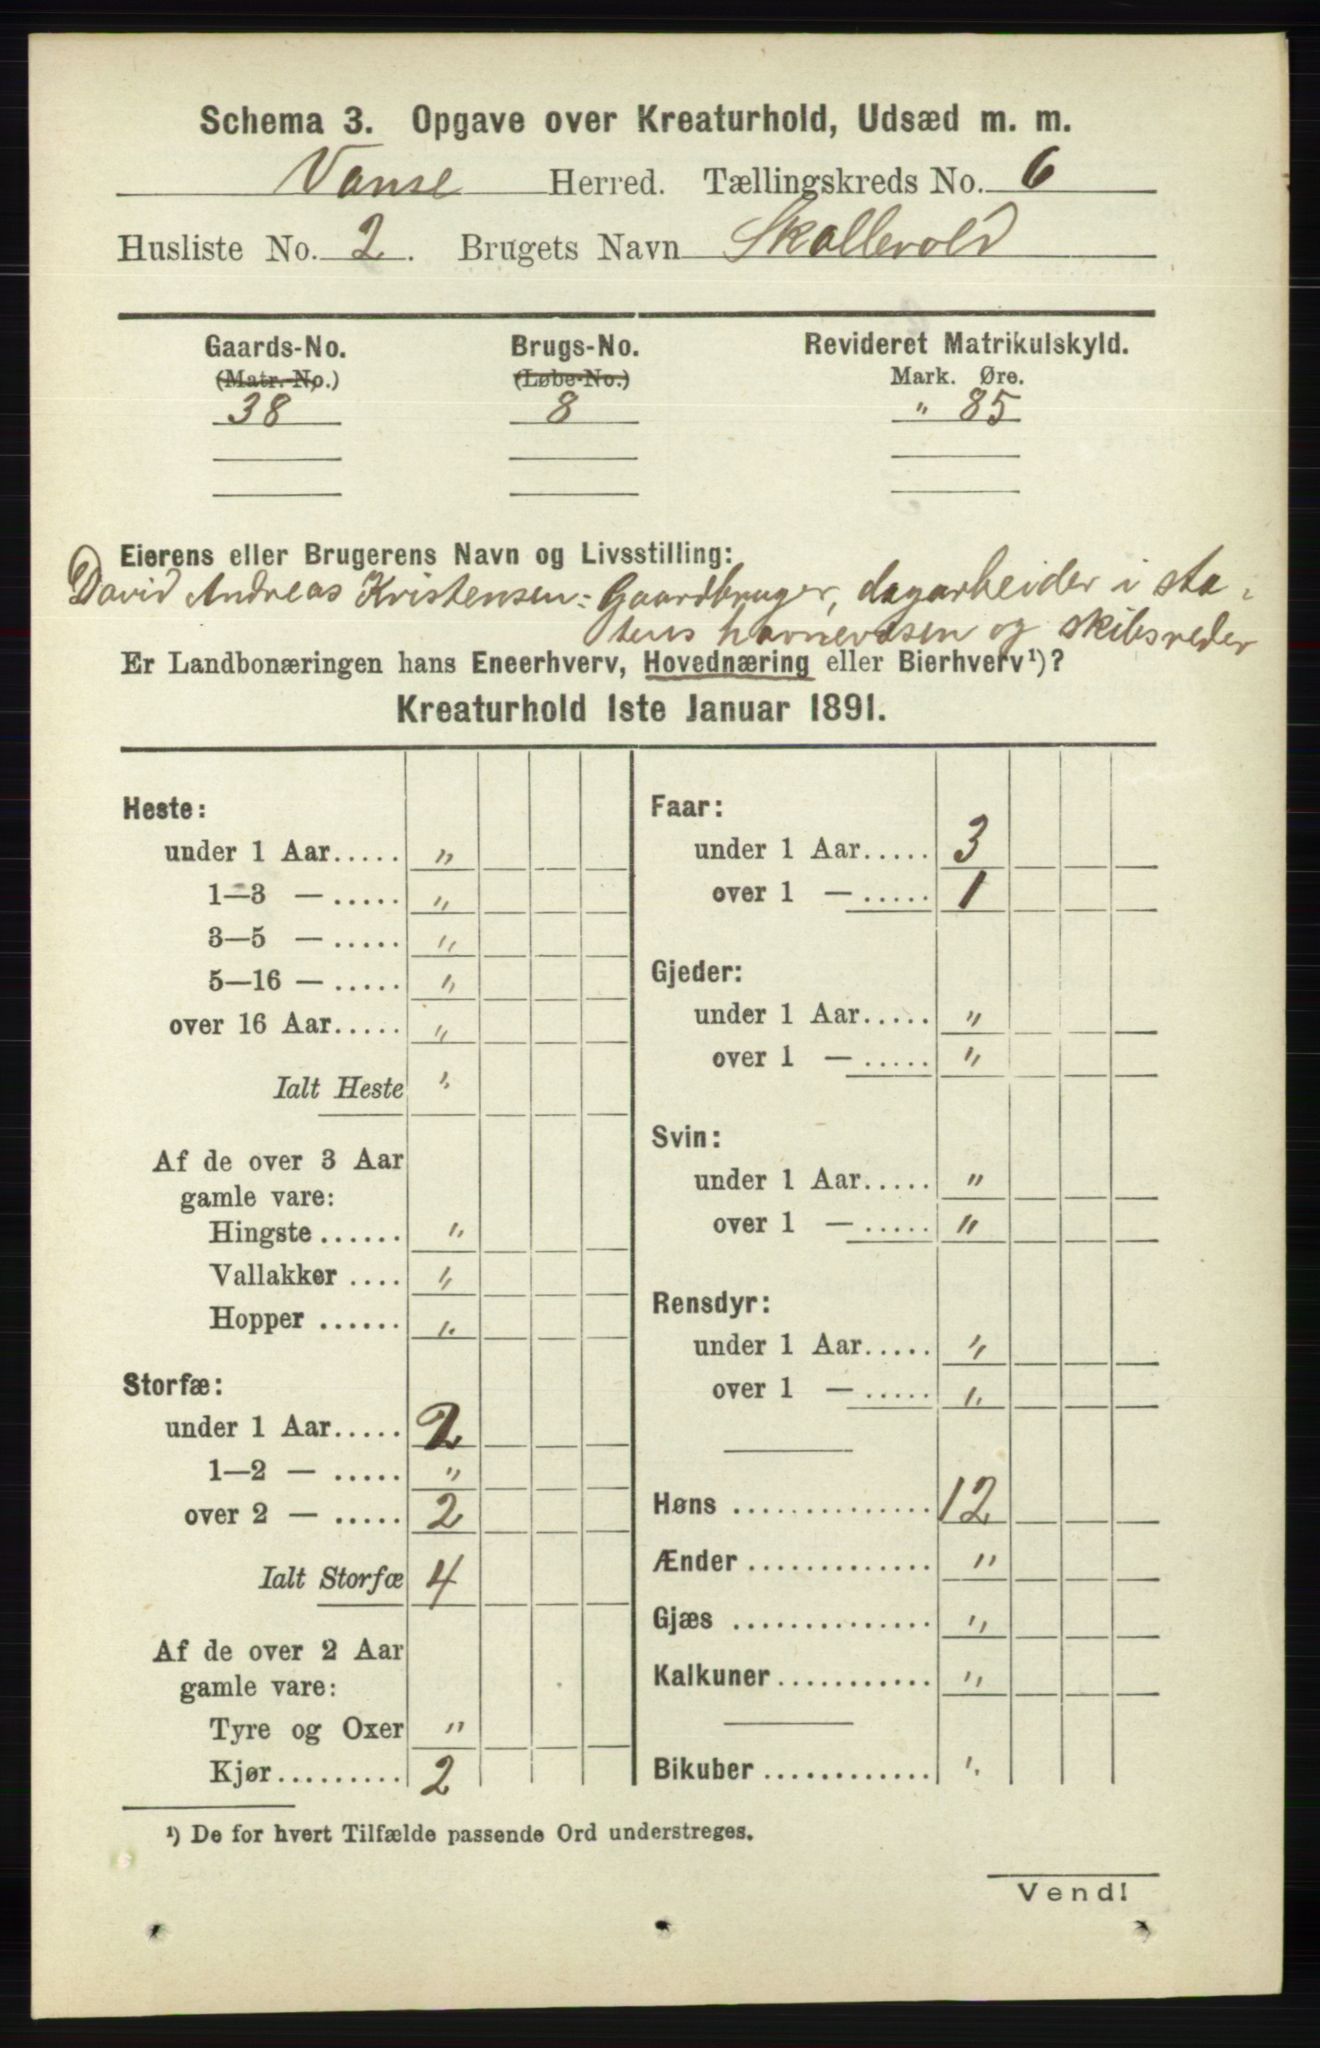 Schema 3. Opgave over Kreaturhold, Udsæd m. m.
Vanse Herred. Tællingskreds No. 6
Husliste No. 2. Brugets Navn Skollevold
Gaards-No. Brugs-No. Revideret Matrikulskyld.
(Matr.-No.) (Løbe-No.) Mark. Øre.
38 8 " 85
Eierens eller Brugerens Navn og Livsstilling:
David Andreas Kristensen: Gaardbruger, dagarbeider i sta-
tens havnevæsen og skibsreder
Er Landbonæringen hans Eneerhverv, Hovednæring eller Bierhverv¹)?
Kreaturhold 1ste Januar 1891.
Heste:
under 1 Aar..... "
1—3 — ..... "
3—5 — ..... "
5—16 — ..... "
over 16 Aar..... "
Ialt Heste "
Af de over 3 Aar
gamle vare:
Hingste ...... "
Vallakker .... "
Hopper ...... "
Storfæ:
under 1 Aar..... 2
1—2 — ..... "
over 2 — ..... 2
Ialt Storfæ 4
Af de over 2 Aar
gamle vare:
Tyre og Oxer "
Kjør......... 2
Faar:
under 1 Aar..... 3
over 1 — ..... 1
Gjeder:
under 1 Aar..... "
over 1 — ..... "
Svin:
under 1 Aar..... "
over 1 — ..... "
Rensdyr:
under 1 Aar..... "
over 1 — ..... "
Høns .............. 12
Ænder ............. "
Gjæs .............. "
Kalkuner ........... "
Bikuber ............ "
¹) De for hvert Tilfælde passende Ord understreges.
Vend!